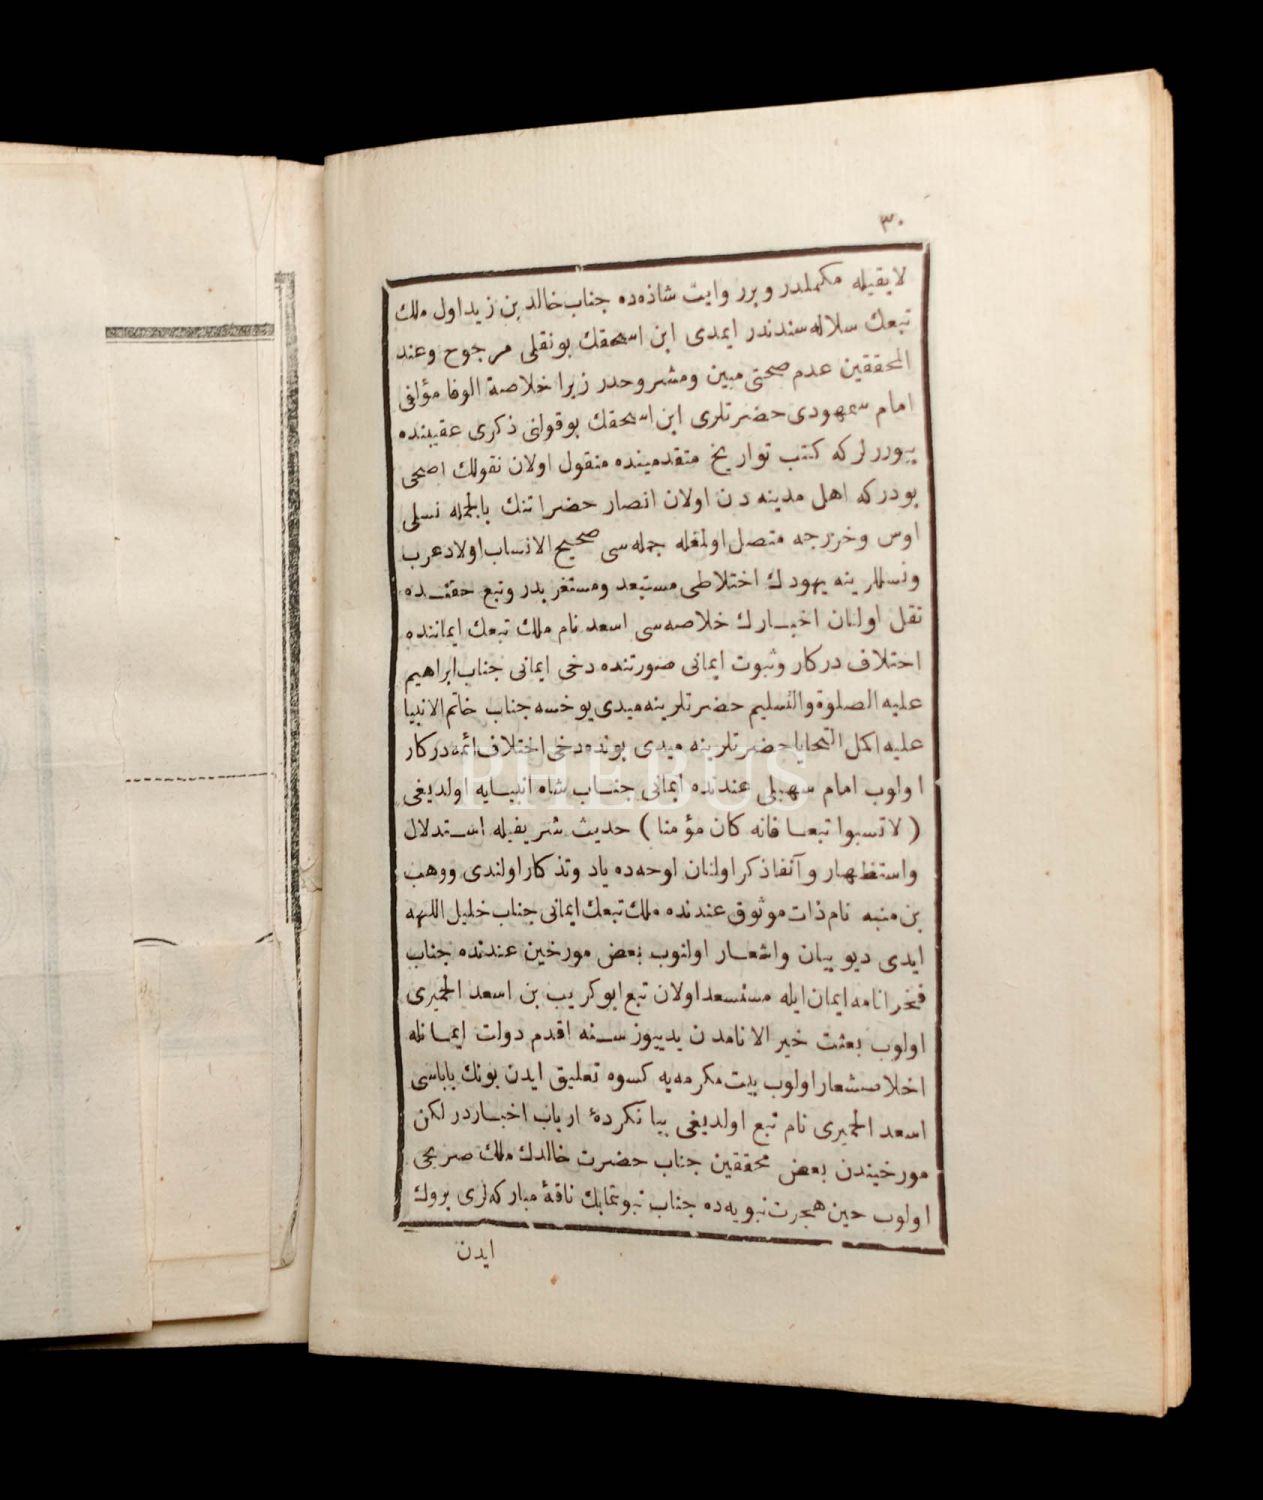 ٣٠
لایقیله مکملدر وبر روایت شاذه‌ده جناب خالد بن زید اول ملك
تبعك سلاله سندندر ایمدی ابن اسحقك بونقلی مرجوح وعند
المحققین عدم صحتی مبین ومشروحدر زیرا خلاصة الوفا مؤلفی
امام سمهودی حضرتلری ابن اسحقك بوقولنی ذکری عقیبنده
بیوررلر که کتب تواریخ متقدمینده منقول اولان نقولك اصحی
بودرکه اهل مدینه دن اولان انصار حضراتنك بالجمله نسلی
اوس وخزرجه متصل اولمغله جمله سی صحیح الانساب اولاد عرب
ونسللرینه یهودك اختلاطی مستبعد ومستغربدر وتبع حقنده
نقل اولنان اخبارك خلاصه سی اسعد نام ملك تبعك ایماننده
اختلاف درکار وثبوت ایمانی صورتنده دخی ایمانی جناب ابراهیم
علیه الصلوة والتسلیم حضرتلرینه میدی یوخسه جناب خاتم الانبیا
علیه اکمل التحایا حضرتلرینه میدی بونده دخی اختلاف ائمه درکار
اولوب امام سهیلی عندنده ایمانی جناب شاه انبیایه اولدیغی
( لاتسبوا تبعا فانه کان مؤمنا ) حدیث شریفیله استدلال
واستظهار وآنفا ذکر اولنان لوحه ده یاد وتذکار اولندی ووهب
بن منبه نام ذات موثوق عندنده ملك تبعك ایمانی جناب خلیل اللهه
ایدی دیو بیان واشعار اولنوب بعض مورخین عندنده جناب
فخر انامه ایمان ایله مستسعد اولان تبع ابو کریب بن اسعد الحمیری
اولوب بعثت خیر الانامدن یدییوز سنه اقدم دولت ایمانله
اخلاصشعار اولوب بیت مکرمه یه کسوه تعلیق ایدن بونك باباسی
اسعد الحمیری نام تبع اولدیغی بیانکردهٔ ارباب اخباردر لکن
مورخیندن بعض محققین جناب حضرت خالدك ملك صریحی
اولوب حین هجرت نبویه ده جناب نبوتمابك ناقهٔ مبارکه لری بروك
ایدن
PHEBUS